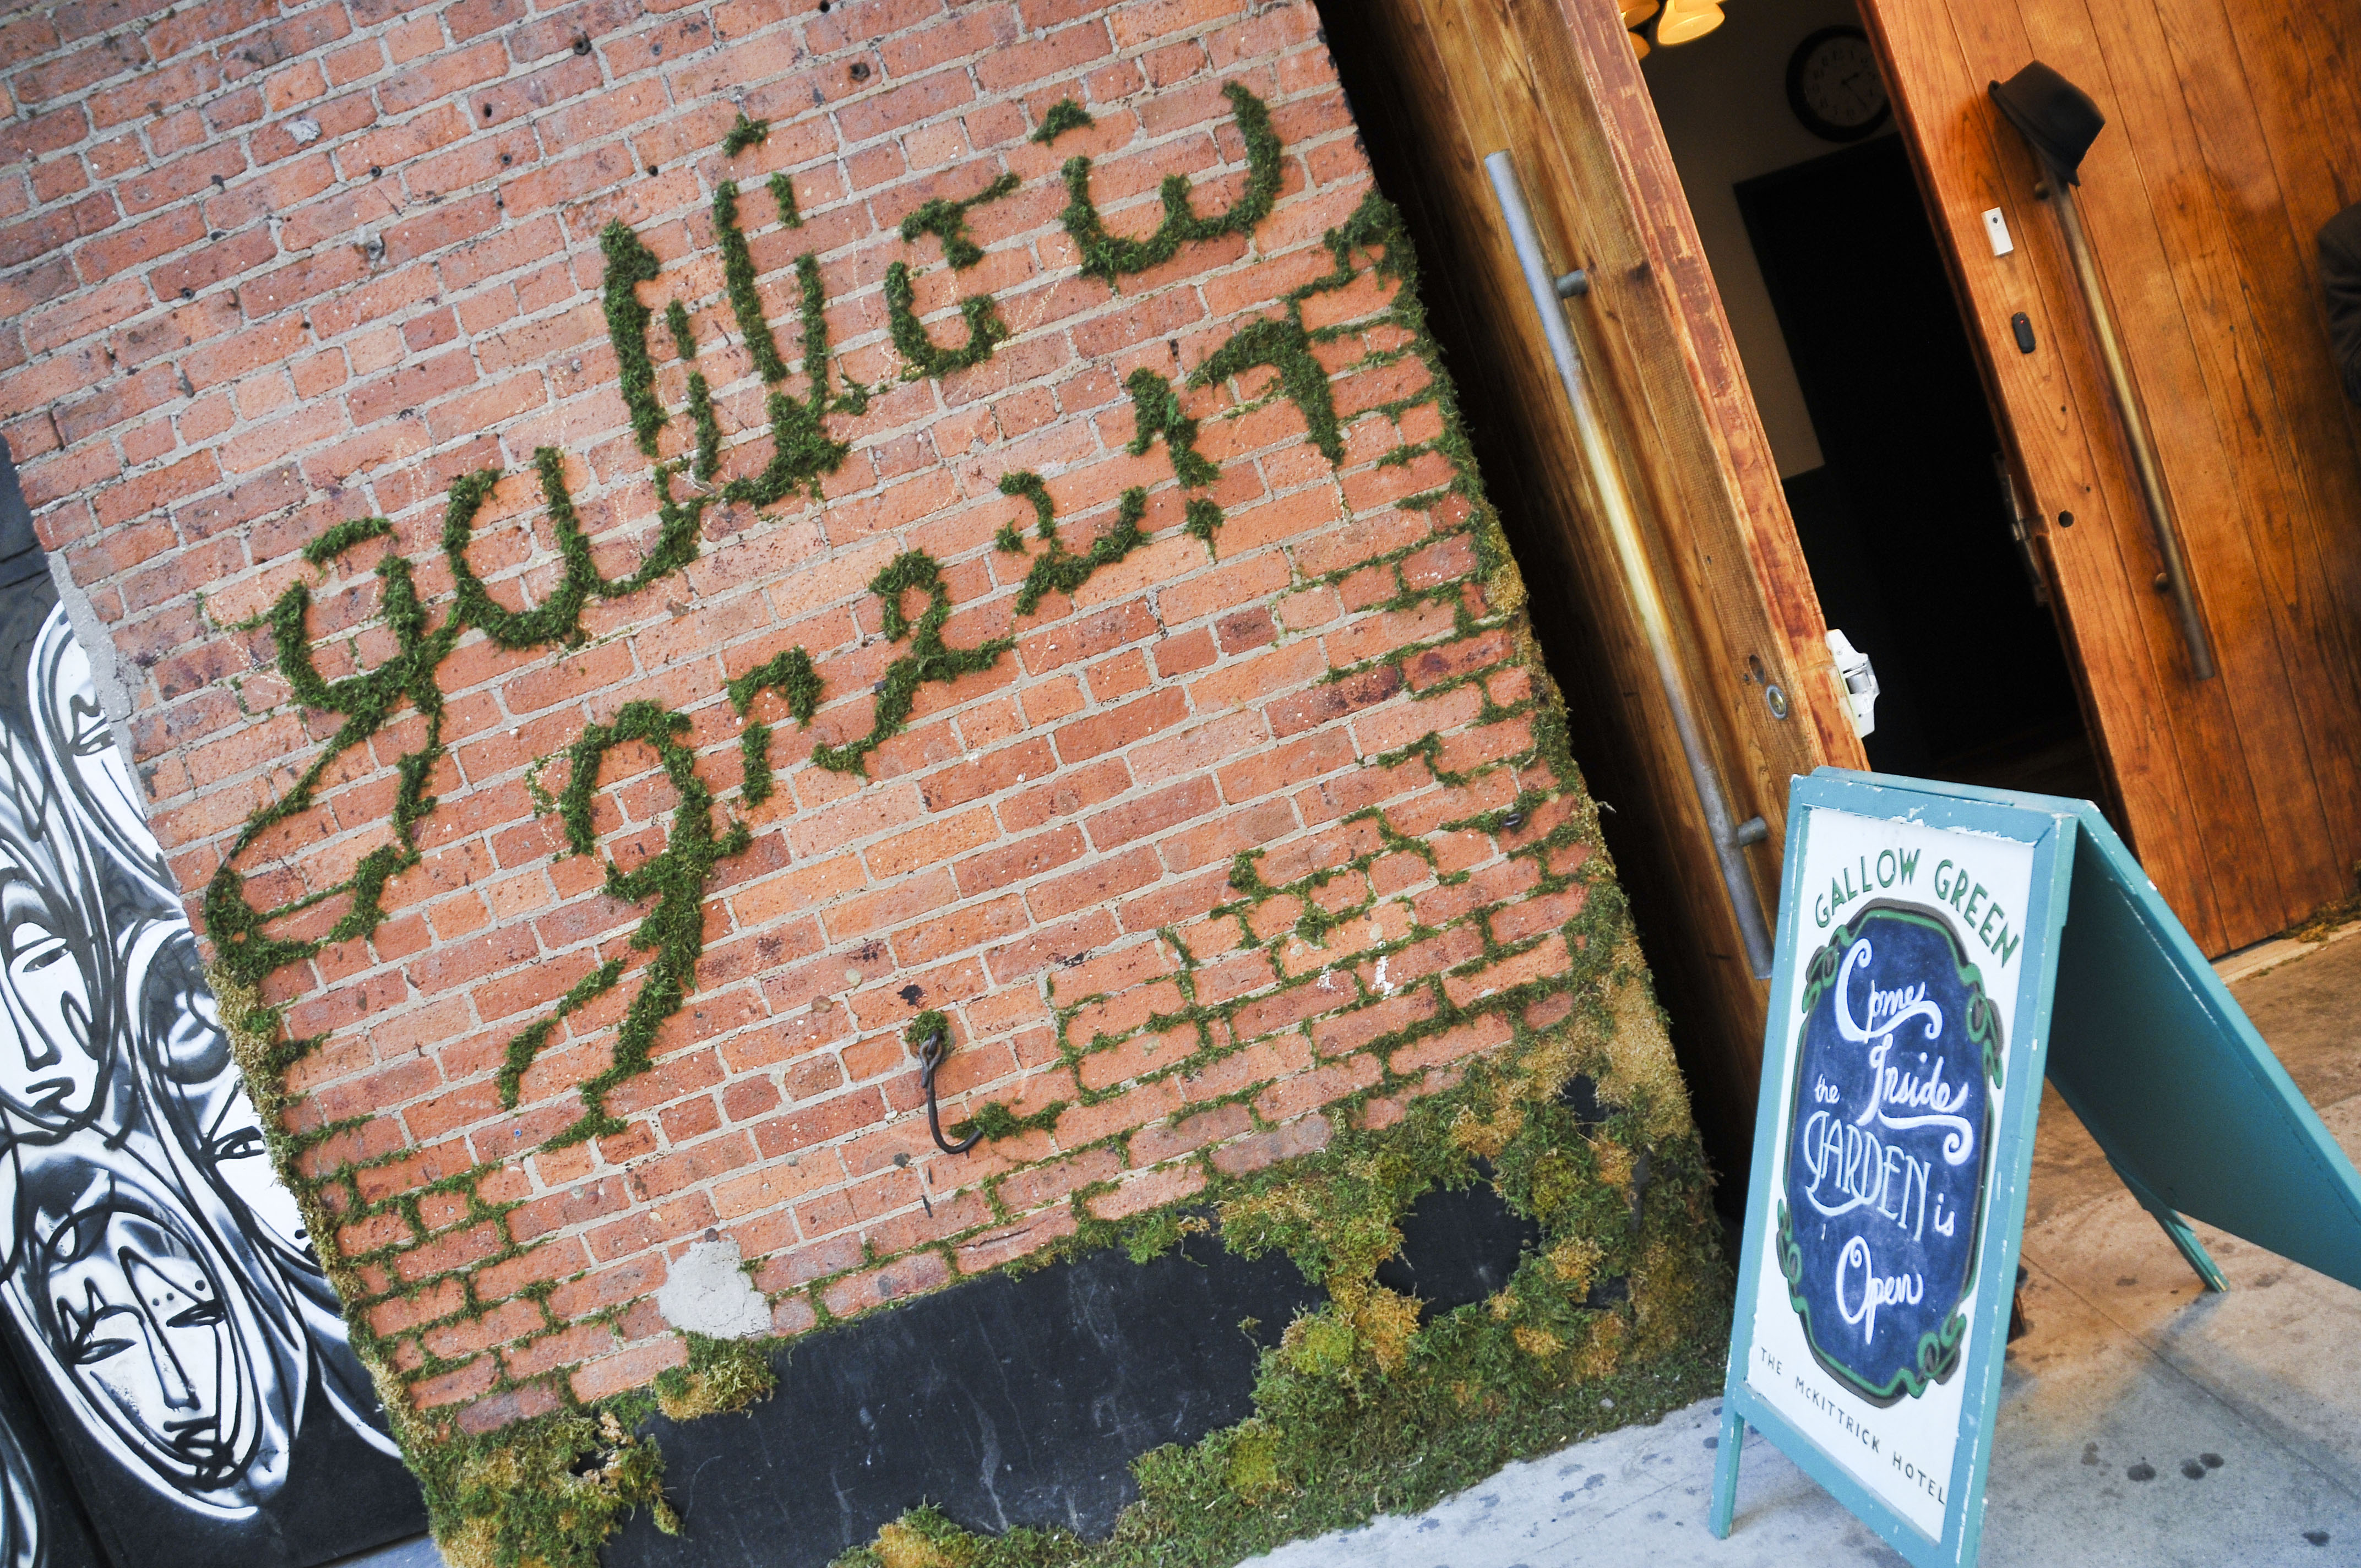 gallow
green
GALLOW GREEN
Come
Inside
the
GARDEN is
Open
THE McKITTRICK HOTEL